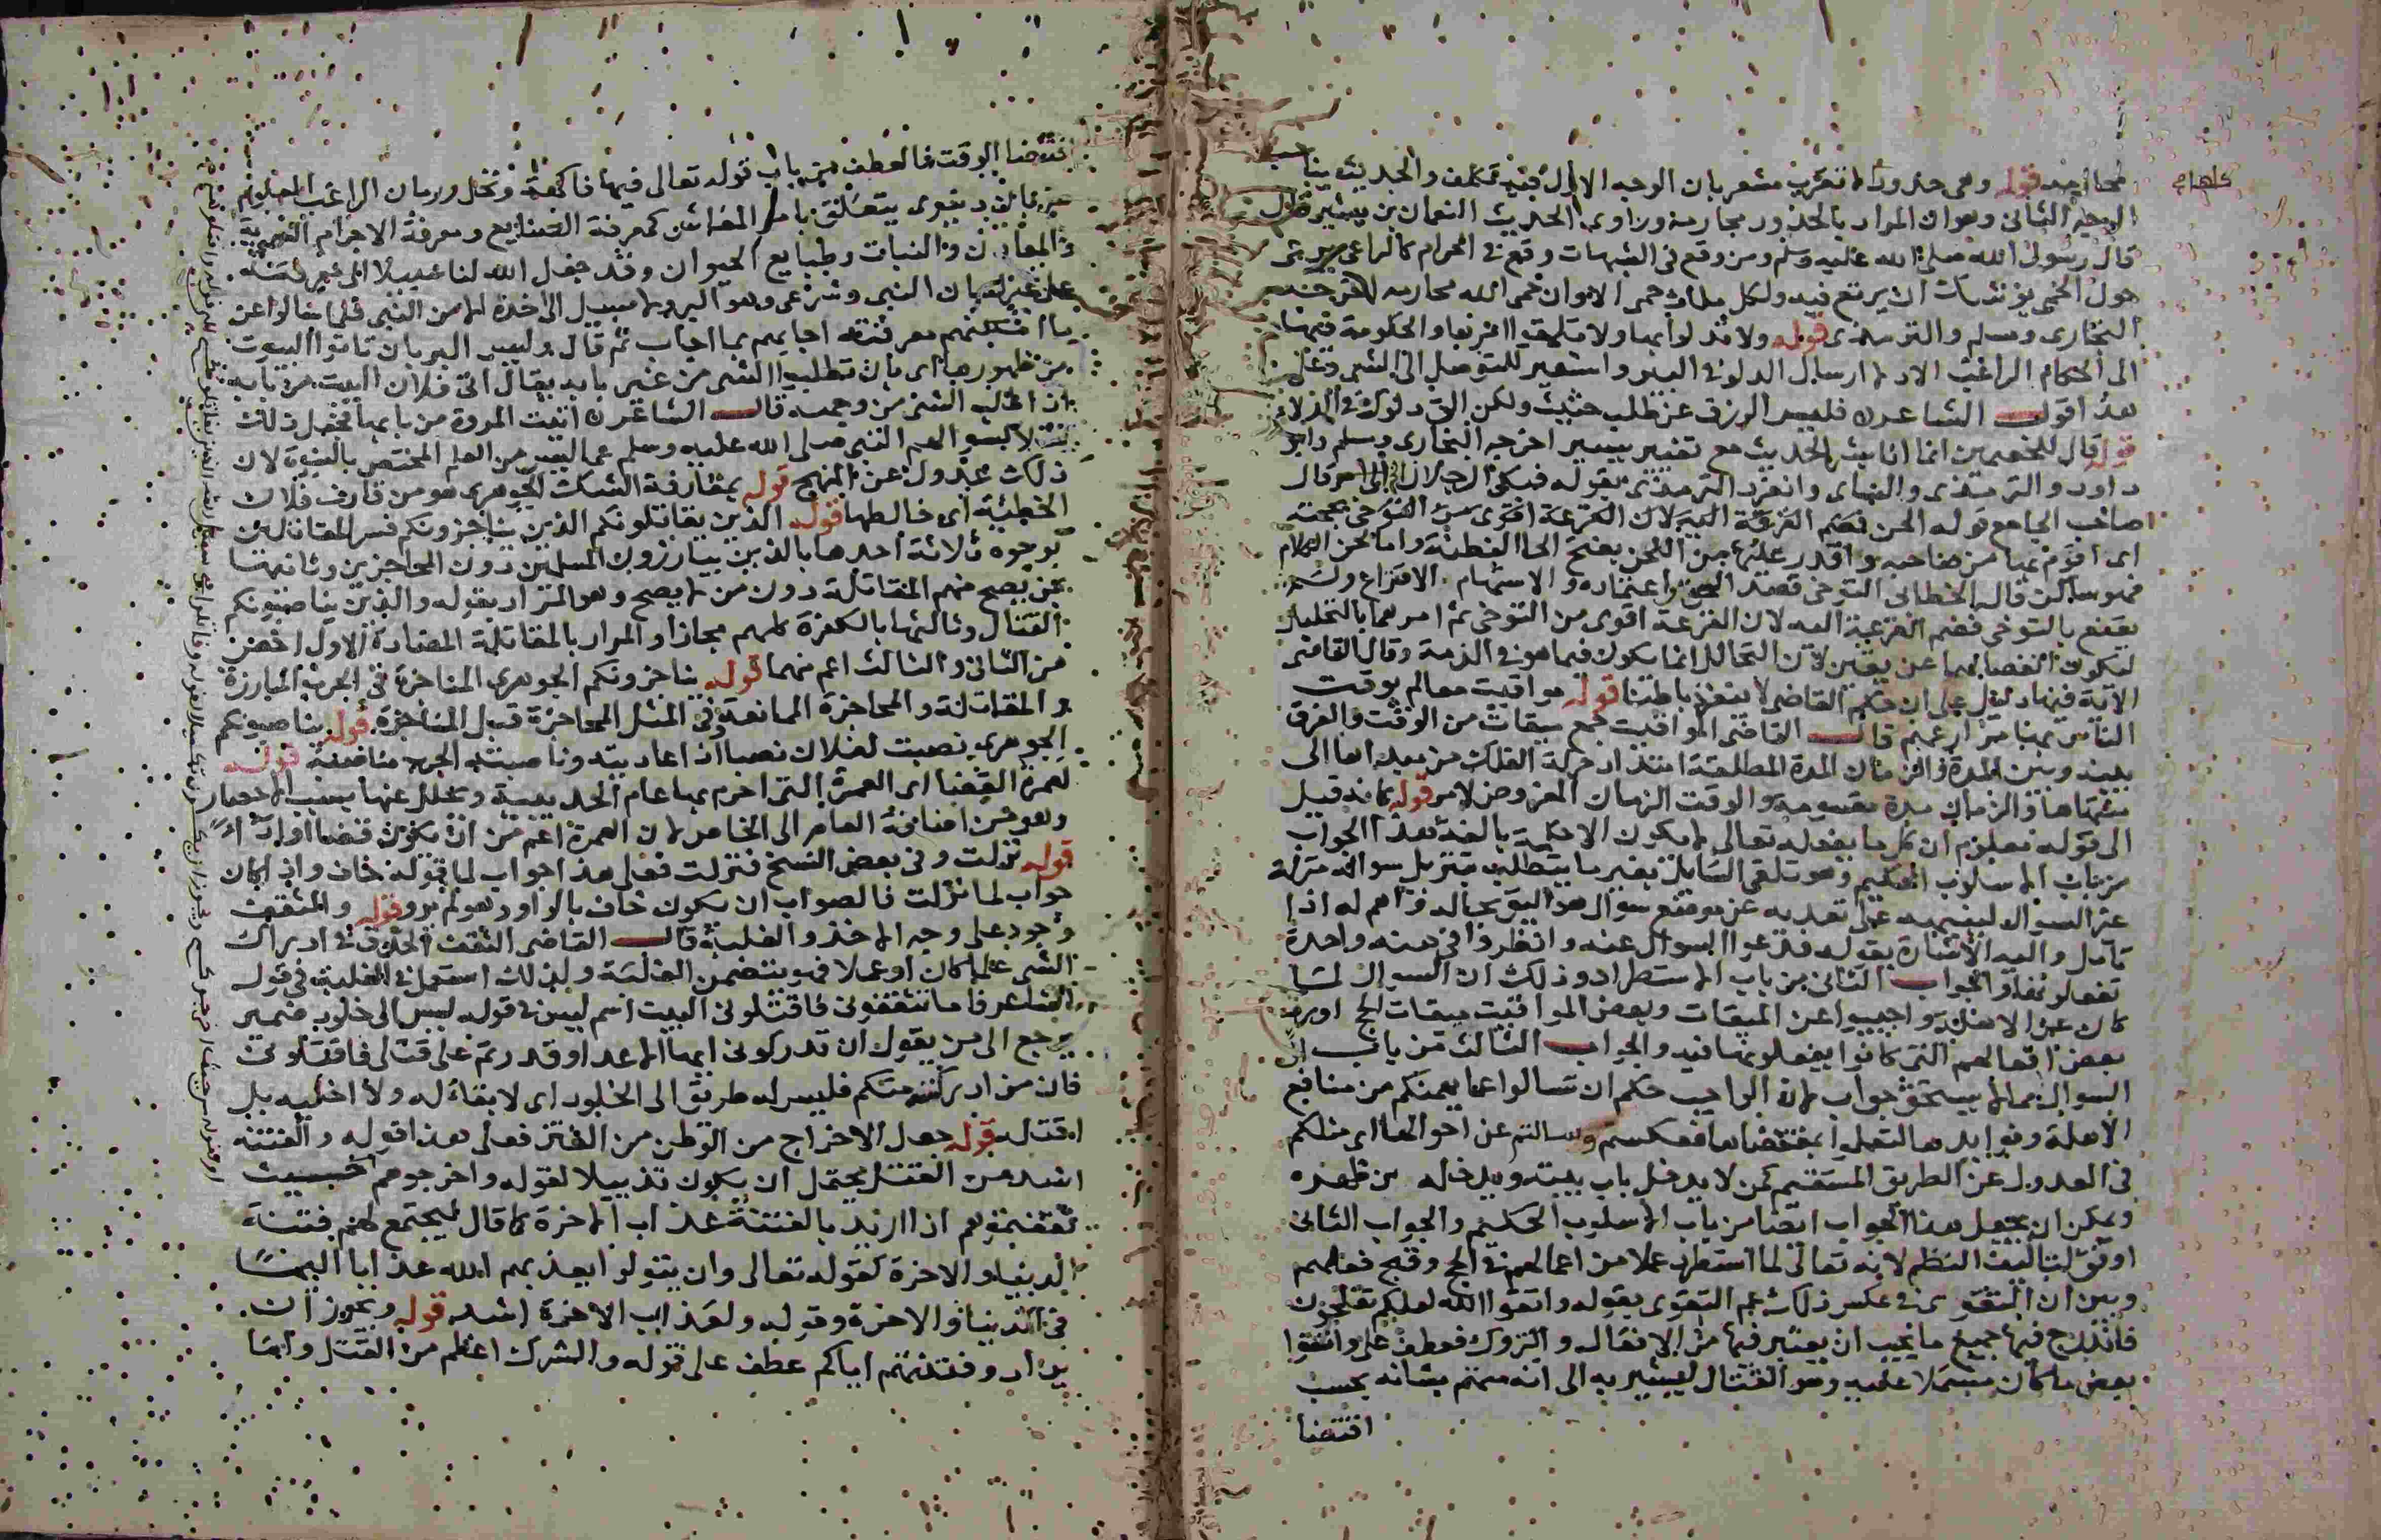 محارمه قوله وهى حدود لا تقرب مشعر بان الوجه الاول فيه تكلف والحديث يناسب
الوجه الثانى وهو ان المراد بالحدود محارمه وراوى الحديث النعمان بن بشير قال
قال رسول الله صلى الله عليه وسلم ومن وقع فى الشبهات وقع فى الحرام كالراعى يرعى
حول الحمى يوشك ان يرتع فيه ولكل ملك حمى الا وان حمى الله محارمه اخرجه
البخارى ومسلم والترمذى قوله ولا تدلوا بها ولا تلقوا امرها والحكومة فيها
الى الحكام الراغب الادلا ارسال الدلو فى البئر واستعير للتوصل الى الشىء وعلى
هذا قول الشاعر فليس الرزق عن طلب حثيث ولكن الق دلوك فى الدلاء
قوله قال للخصمين انما انا بشر الحديث مع تغيير يسير اخرجه البخارى ومسلم وابو
داود والترمذى والنسائى وانفرد الترمذى بقوله فبكى الرجلان الى اخره قال
صاحب الجامع قوله الحن فضم القرعة اليه لان القرعة اقوى من التوخى بحجته
اى اقوم بها من صاحبه واقدر عليها من اللحن بفتح الحا الفطنة واما لحن الكلام
فهو ساكن قال الخطابى التوخى قصد الحق واعتماده والاستهام الاقتراع ولم
يقنع بالتوخى فضم القرعة اليه لان القرعة اقوى من التوخى ثم امرهما بالتحليل
ليكون انفصالهما عن يقين لان التحالل انما يكون فيما هو فى الذمة وقال القاضى
الاية فيها دليل على ان حكم القاضى لا ينفذ باطنا قوله مواقيت معالم يوقت
الناس بها مزارعهم قال القاضى المواقيت جمع ميقات من الوقت والفرق
بينه وبين المدة والزمان المدة المطلقة امتداد حركة الفلك من مبداها الى
منتهاها والزمان مدة مقسومة والوقت الزمان المفروض لامر قوله كانه قيل
الى قوله معلوم ان كل ما يفعله تعالى لا يكون الا حكمة بالغة هذا الجواب
من باب الاسلوب الحكيم وهو تلقى السايل بغير ما يتطلب بتنزيل سواله منزلة
غير السوال لينبهه على تعديه عن موضع سوال هو اليق بحاله واهم له اذا
تامل واليه الاشارة بقوله فدعوا السوال عنه وانظروا فى هذه واحدة
تفعلونها والجواب الثانى من باب الاستطراد وذلك ان السوال لما
كان عن الاهلة واجيبوا عن الميقات وبعض المواقيت ميقات الحج اورد
بعض افعالهم التى كانوا يفعلونها فيه والجواب الثالث من باب ان
السوال مما لا يستحق جواب لان الواجب حكم ان تسالوا عما يهمكم من منافع
الاهلة وفوايدها لتعملوا بمقتضاها فعكستم وسالتم عن احوالها اى مثلكم
فى العدول عن الطريق المستقيم كمن لا يدخل باب بيته ويدخله من ظهره
ويمكن ان يجعل هذا الجواب ايضا من باب الاسلوب الحكيم والجواب الثانى
اوفق لتاليف النظم لانه تعالى لما استطرد عملا من اعمالهم فى الحج وقبح فعلهم
وبين ان التقوى فى عكس ذلك عم التقوى بقوله واتقوا الله لعلكم تفلحون
فاندرج فيها جميع ما يجب ان يعتبر فيها من الافعال والتروك فعطف على واتقوا
بعض ما كان مشتملا عليه وهو القتال ليشير به الى انه مهتم بشانه بحسب
اقتضا
اقتضا الوقت فالعطف من باب قوله تعالى فيها فاكهة ونخل ورمان الراغب المعلوم
ضربان دنيوى يتعلق بامر المعاش كمعرفة الصنايع ومعرفة الاجرام
والمعادن والنبات وطبايع الحيوان وقد جعل الله لنا سبيلا الى معرفته
على غير لسان النبى وشرعى وهو البر ولا سبيل الى اخذه الا من النبى فلما سالوا عن
ما امكنهم معرفته اجابهم بما اجاب ثم قال وليس البر بان تاتوا البيوت
من ظهورها اى بان تطلبوا الشىء من غير بابه يقال اتى فلان البيت من بابه
اذا طلب الشىء من وجهه قال الشاعر اتيت المروة من بابها فجعل ذلك
مثلا لسوالهم النبى صلى الله عليه وسلم عما ليس من العلم المختص بالنبوة لان
ذلك عدول عن المنهج قوله بمقارفة الشك الجوهرى هو من قارف فلان
الخطيئة اى خالطها قوله الذين يقاتلونكم الذين يناجزونكم فسر المقاتلين
بوجوه ثلاثة احدها بالذين يبارزون المسلمين دون المحاجزين وثانيها
بمن يصح منهم المقاتلة دون من لا يصح وهو المراد بقوله والذين يناصبونكم
القتال وثالثها بالكفرة كلهم مجازا والمراد بالمقاتلة المضادة الاول اخص
من الثانى والثالث اعم منهما قوله يناجزونكم الجوهرى المناجزة فى الحرب المبارزة
والمقاتلة والمحاجزة الممانعة وفى المثل المحاجزة قبل المناجزة قوله يناصبونكم
الجوهرى نصبت لفلان نصبا اذا عاديته وناصبته الحرب مناصبة قوله
لعمرة القضا اى العمرة التى احرم بها عام الحديبية وتحلل عنها بسبب الاحصار
وهو من اضافة العام الى الخاص لان العمرة اعم من ان تكون قضا او اداء
قوله نزلت وفى بعض النسخ فنزلت فعلى هذا جواب لما قوله خاف واذا كان
جواب لما نزلت فالصواب ان يكون خاف بالواو وهو لم يرو قوله والثقف
وجود على وجه الاخذ والغلبة قال القاضى الثقف الحذق فى ادراك
الشىء علما كان او عملا فهو يتضمن الغلبة ولذلك استعمل فى الغلبة فى قول
الشاعر فاما تثقفونى فاقتلونى البيت اسم ليس فى قوله ليس الى خلود ضمير
يرجع الى من يقول ان تدركونى ايها الاعداء وقدرتم على قتلى فاقتلونى
فان من ادركته منكم فليس له طريق الى الخلود اى لا بقاء له ولا اخليه بل
اقتله قوله جعل الاخراج من الوطن من الفتن فعلى هذا قوله والفتنة
اشد من القتل يحتمل ان يكون تذييلا لقوله واخرجوهم حيث
ثقفتموهم اذا اريد بالفتنة عذاب الاخرة كما قال ليجتمع لهم فتنة
الدنيا والاخرة كقوله تعالى وان يتولوا يعذبهم الله عذابا اليما
فى الدنيا والاخرة وقوله ولعذاب الاخرة اشد قوله ويجوز ان
يراد وفتنتهم اياكم عطف على قوله والشرك اعظم من القتل وايما